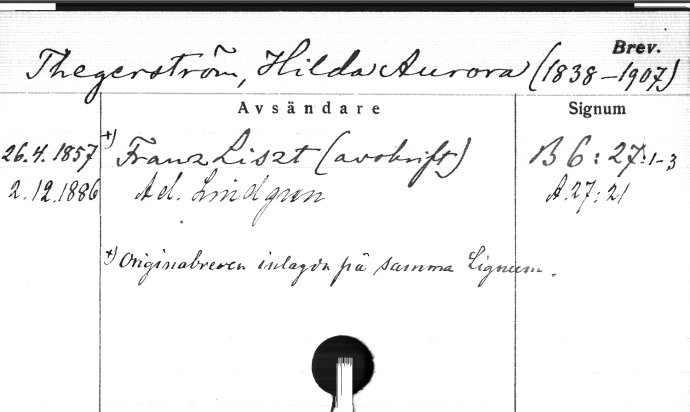 Brev.
Thegerström, Hilda Aurora (1838-1907)
Avsändare Signum
26.4.1857 +) Franz Liszt (avskrift) B 6:27:1-3
2.12.1886 Ad. Lindgren A.27:21
+) Originalbreven inlagda på samma Signum.